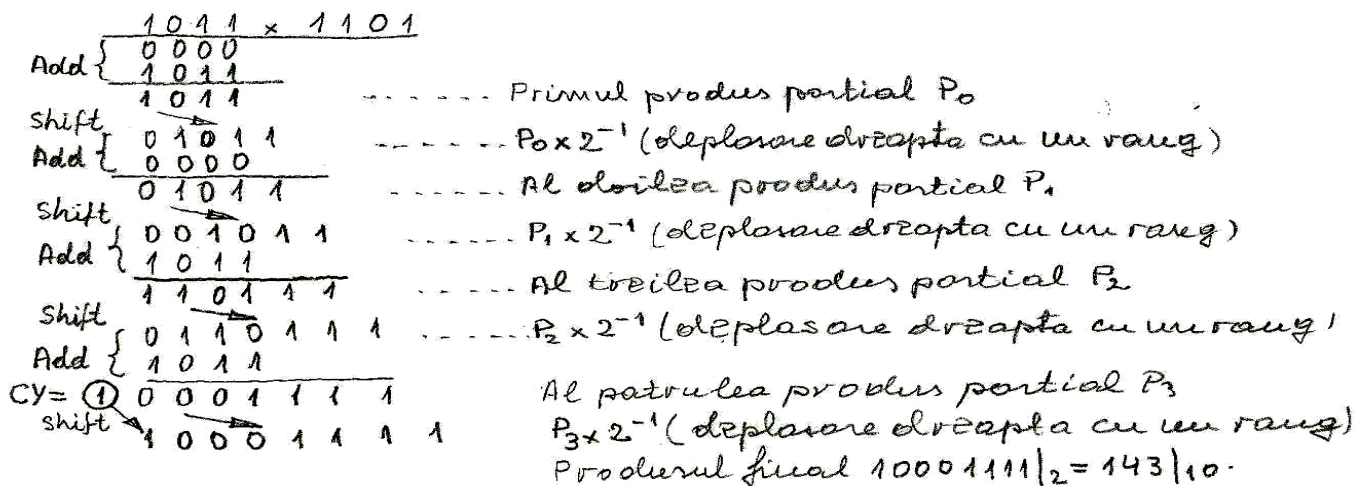 1011 × 1101
Add { 0000
1011
1011 ...... Primul produs partial P₀
Shift
Add { 01011 ...... P₀ × 2⁻¹ (deplasare dreapta cu un rang)
0000
01011 ...... Al doilea produs partial P₁
Shift
Add { 001011 ...... P₁ × 2⁻¹ (deplasare dreapta cu un rang)
1011
110111 ...... Al treilea produs partial P₂
Shift
Add { 0110111 ...... P₂ × 2⁻¹ (deplasare dreapta cu un rang)
1011
CY= 1 0001111 Al patrulea produs partial P₃
Shift 10001111 P₃ × 2⁻¹ (deplasare dreapta cu un rang)
Produsul final 10001111|₂ = 143|₁₀.